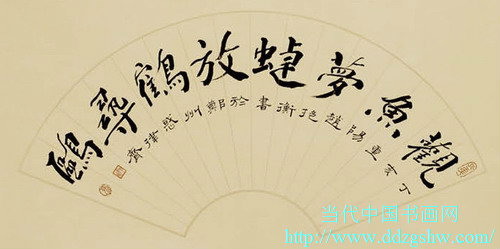 觀魚夢蜨放鶴尋鷗
丁亥重陽趙衡書於鄭州齋
当代中国书画网
http://www.ddzgshw.com/